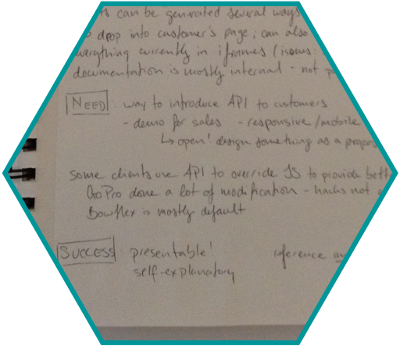 can be generated several ways
drop into customer's page, can also
everything currently in iframes /
documentation is mostly internal - not
NEED: way to introduce API to customers
- demo for sales - responsive/mobile
↳ open! design something as a
some clients use API to override JS to provide
GoPro done a lot of modification - hacks not
Bowflex is mostly default
SUCCESS: presentable!
reference
self-explanatory